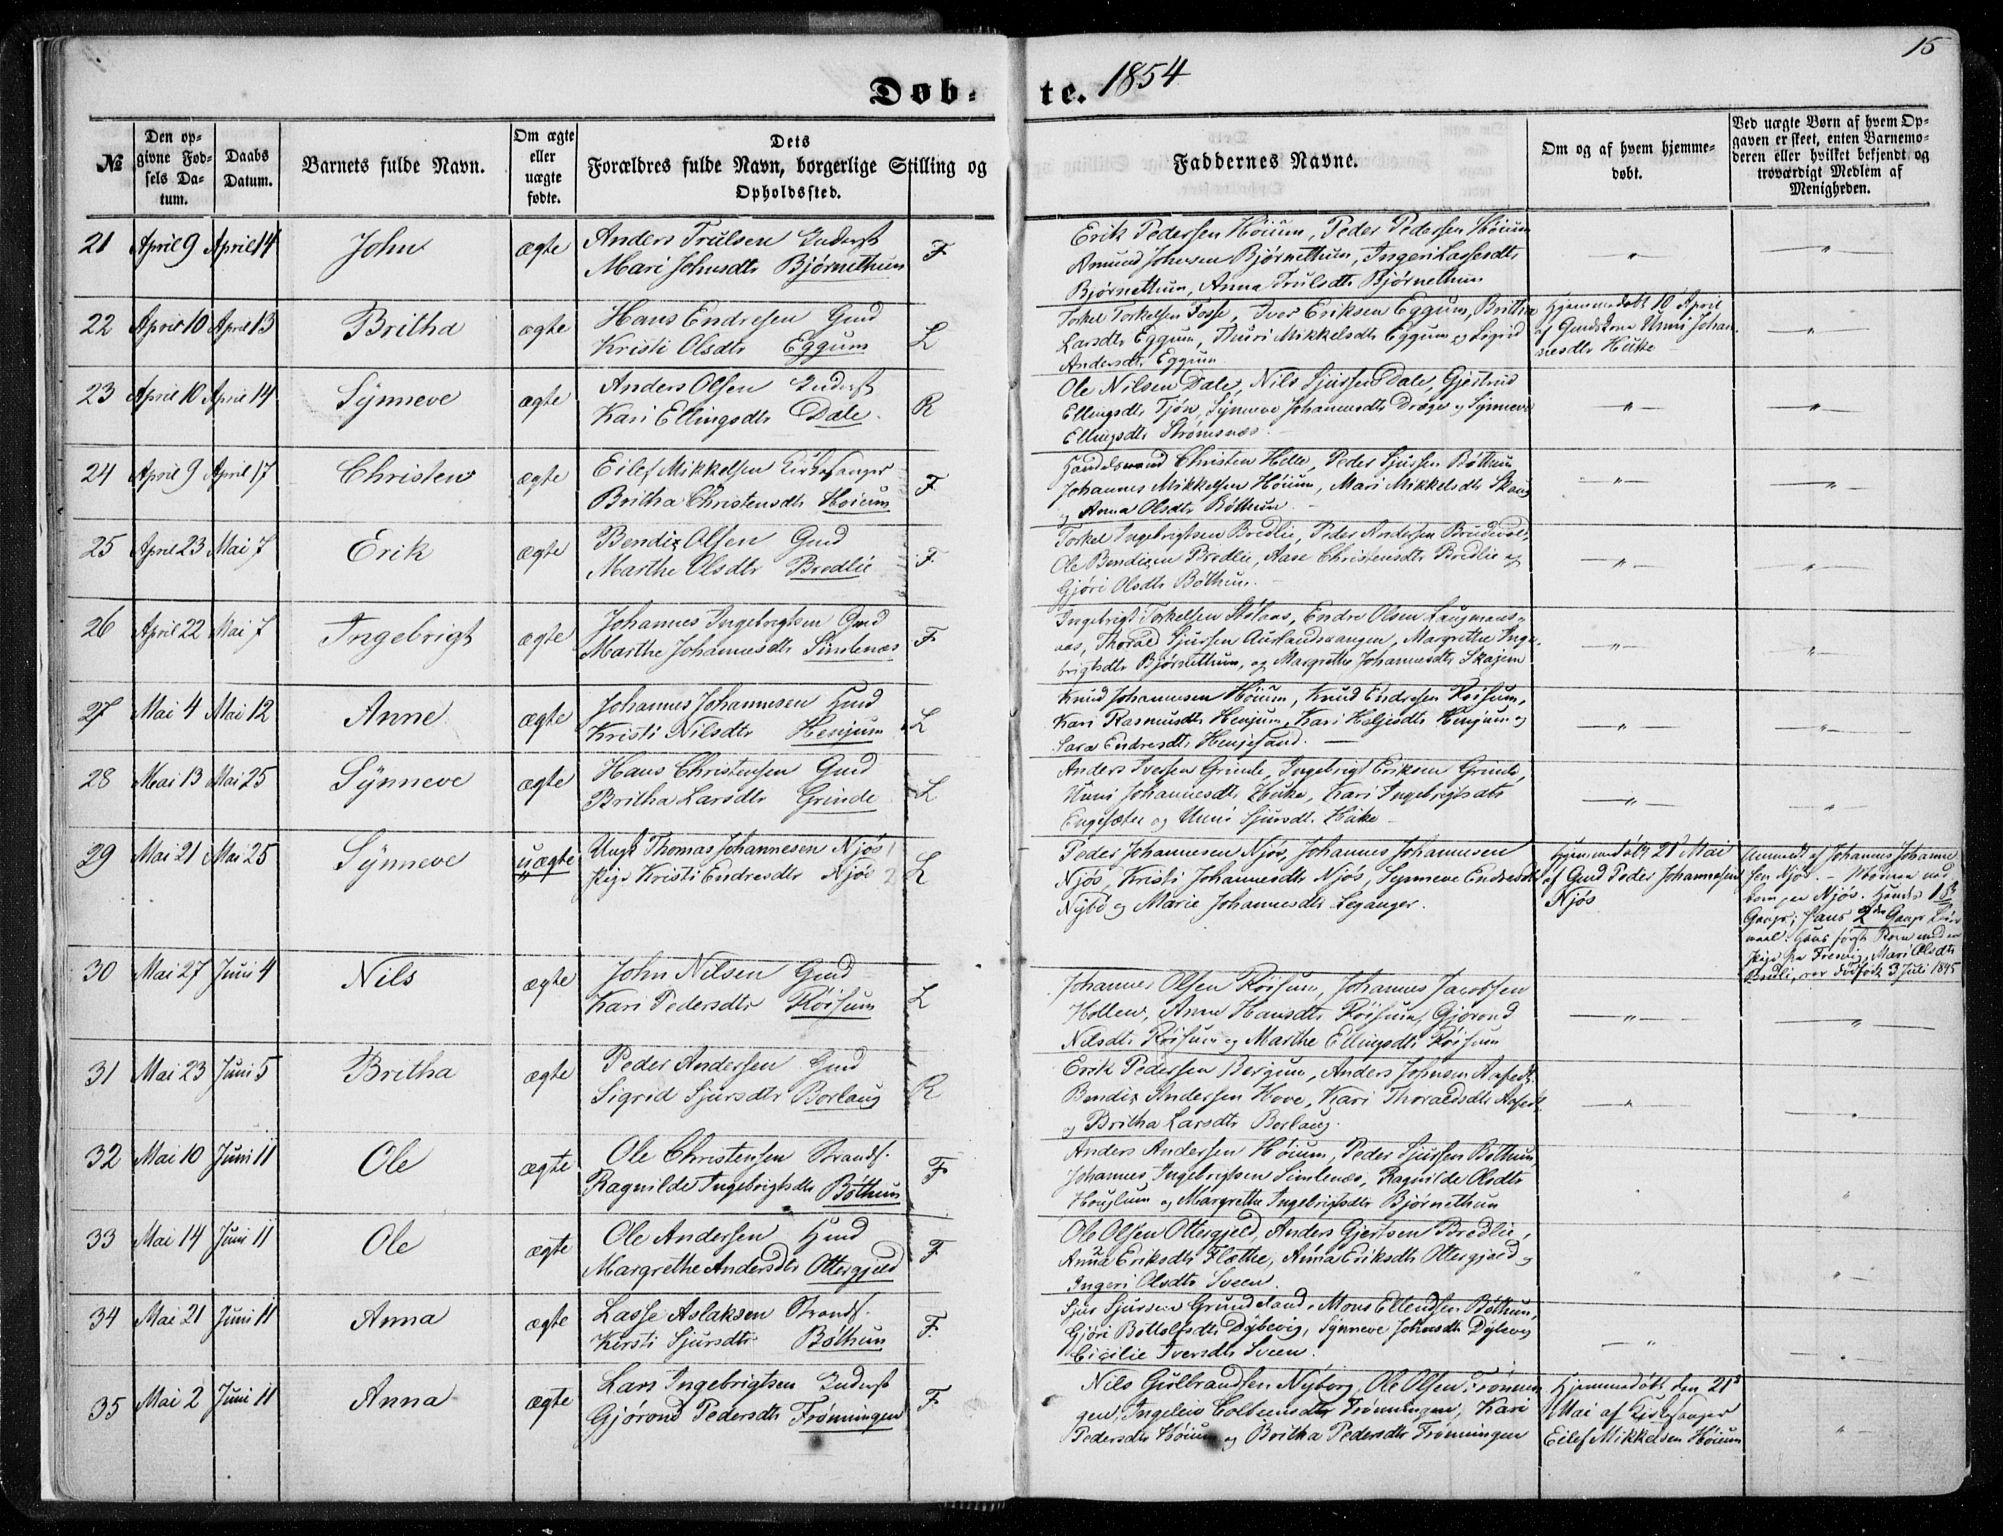 15
Døb-te. 1854
№
Den opgivne Fødsels Datum.
Daabs Datum.
Barnets fulde Navn.
Om ægte eller uægte fødte.
Dets Forældres fulde Navn, borgerlige Stilling og Opholdssted.
Faddernes Navne.
Om og af hvem hjemmedøbt.
Ved uægte Børn af hvem Opgaven er skeet, enten Barnemoderen eller hvilket bekjendt og troværdigt Medlem af Menigheden.
21 April 9 April 14 John ægte Anders Trulsen Inderst
Mari Johnsdtr Bjørnethun F
Erik Pedersen Høium, Peder Pedersen Høium
Amund Johnsen Bjørnethun, Ingeri Lassesdtr
Bjørnethun, Anna Trulsdtr Bjørnethun
22 April 10 April 13 Britha ægte Hans Endresen Gmd
Kristi Olsdtr Eggum L
Torkel Torkelsen Fosse, Iver Eriksen Eggum, Britha
Larsdtr Eggum, Thuri Mikkelsdtr Eggum og Sigrid
Andersdtr Eggum
Hjemmedøbt 10 April
af Gmdskone Unni Johan-
nesdtr Huke
23 April 10 April 14 Synneve ægte Anders Olsen Inderst
Kari Ellingsdtr Dale R
Ole Nilsen Dale, Nils Sjursen Dale, Gjertrud
Ellingsdtr Tjøn, Synneve Johannesdtr Dræge og Synneve
Ellingsdtr Strømsnæs
24 April 9 April 17 Christen ægte Eilef Mikkelsen Kirkesanger
Britha Christensdtr Høium F
Handelsmand Christen Helle, Peder Sjursen Bøthun
Johannes Mikkelsen Høium, Mari Mikkelsdtr
og Anna Olsdtr Bøthun
25 April 23 Mai 7 Erik ægte Bendix Olsen Gmd
Marthe Olsdtr Bredlie F
Torkel Ingebrigtsen Bredlie, Peder Andersen
Ole Bendixen Bredlie, Aase Christensdtr Bredlie og
Gjøri Olsdtr Bøthun
26 April 22 Mai 7 Ingebrigt ægte Johannes Ingebrigtsen Gmd
Marthe Johannesdtr Simlenæs F
Ingebrigt Torkelsen Støllaas, Endre Olsen Laugmans-
næs, Thorald Sjursen Aurlandsvangen, Margrethe Inge-
brigtsdtr Bjørnethun, og Margrethe Johannesdtr Skajem
27 Mai 4 Mai 12 Anne ægte Johannes Johannesen Gmd
Kristi Nilsdtr Henjum L
Knud Johannesen Høium, Knud Endresen Røisum,
Kari Rasmusdtr Henjum, Kari Helgesdtr Henjum og
Sara Endresdtr Henjesand
28 Mai 13 Mai 25 Synneve ægte Hans Christensen Gmd
Britha Larsdtr Grinde L
Anders Iversen Grinde, Ingebrigt Eriksen Grinde,
Unni Johannesdtr Huke, Kari Ingebrigtsdtr
Engesæter og Unni Sjursdtr Huke
29 Mai 21 Mai 25 Synneve uægte Ungk Thomas Johannesen Njøs 1
Pige Kristi Endresdtr Njøs 2 L
Peder Johannesen Njøs, Johannes Johannesen
Njøs, Kristi Johannesdtr Njøs, Synneve Endresdtr
Nybø og Marie Johannesdtr Leganger
Hjemmedøbt 21 Mai
af Gmd Peder Johannesen
Njøs
Anmeldt af Johannes Johanne-
sen Njøs.
Hans første Barn med en
Pige fra Fresvig, Mari Olsdtr
Bredli, var Født 3 Juli 1845
30 Mai 27 Juni 4 Nils ægte John Nilsen Gmd
Kari Pedersdtr Røisum L
Johannes Olsen Røisum, Johannes Jacobsen
Hollen, Anne Hansdtr Røisum, Gjørond
Nilsdtr Røisum og Marthe Ellingsdtr Røisum
31 Mai 23 Juni 5 Britha ægte Peder Andersen Gmd
Sigrid Sjursdtr Borlaug R
Erik Pedersen Bergum, Anders Johnsen Aafedt
Bendix Andersen Hove, Kari Thoraldsdtr Aafedt
og Britha Larsdtr Borlaug
32 Mai 10 Juni 11 Ole ægte Ole Christensen Strands.
Ragnilde Ingebrigtsdtr Bøthun F
Anders Andersen Høium, Peder Sjursen Bøthun
Johannes Ingebrigtsen Simlenæs, Ragnilde Olsdtr
Houglum og Margrethe Ingebrigtsdtr Bjørnethun
33 Mai 14 Juni 11 Ole ægte Ole Andersen Hmd
Margrethe Andersdtr Ottergjeld F
Ole Olsen Ottergjeld, Anders Gjertsen Bredlie,
Anna Eriksdtr Flæthe, Anna Eriksdtr Ottergjeld og
Ingeri Olsdtr Sveen
34 Mai 21 Juni 11 Anna ægte Lasse Aslaksen Strands.
Kirsti Sjursdtr Bøthun F
Sjur Sjursen Grundeland, Mons Ellendsen Bøthun,
Gjøri Bottolfsdtr Dybevig, Synneve Johnsdtr Dybevig
Cicilie Iversdtr Sveen
35 Mai 2 Juni 11 Anna ægte Lars Ingebrigtsen Inderst
Gjørond Pedersdtr Trønningen F
Nils Gulbrandsen Nyborg, Ole Olsen Trønnin-
gen, Ingeleiv Colbensdtr Trønningen, Kari
Pedersdtr Høium og Britha Pedersdtr Trønningen
Hjemmedøbt den 21de
Mai af Kirkesanger
Eilef Mikkelsen Høium